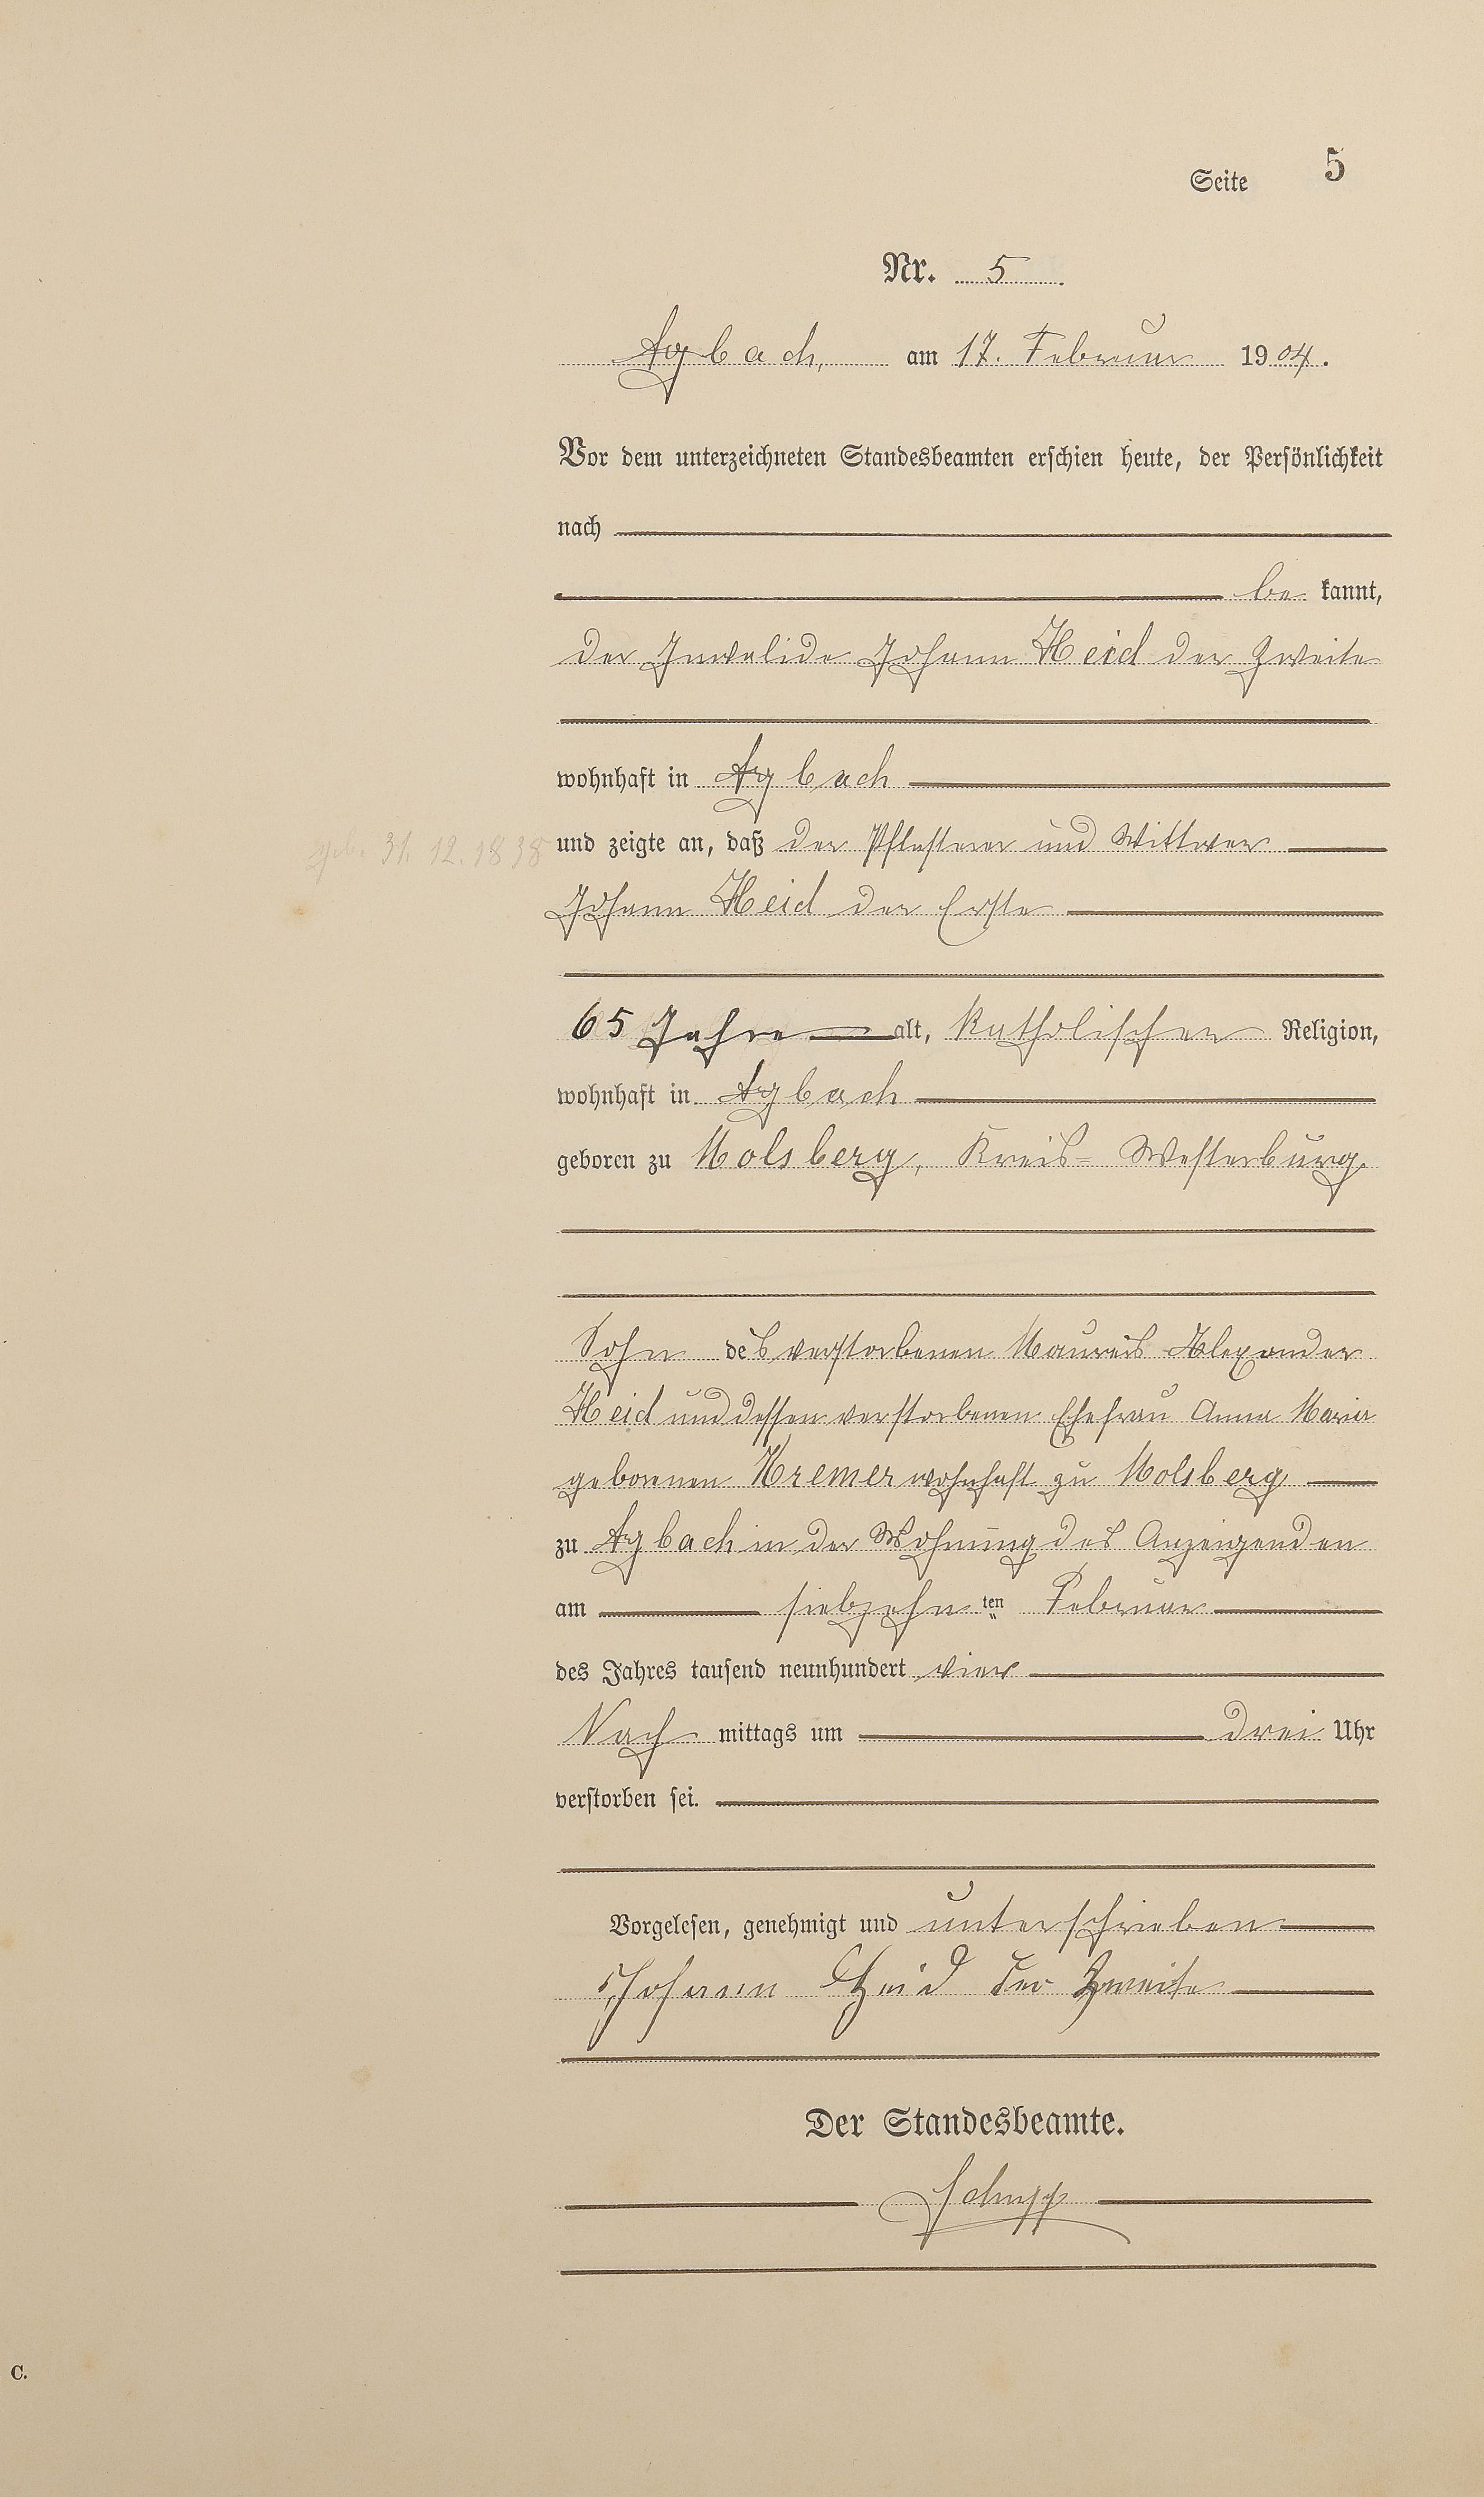 Seite 5
Nr. 5.
Arzbach, am 17. Februar 1904.
Vor dem unterzeichneten Standesbeamten erschien heute, der Persönlichkeit
nach
be kannt,
der Invalide Johann Heid der Zweite
wohnhaft in
geb. 31.12.1838
und zeigte an, daß der Pflasterer und Wittwer
Johann Heid der Erste
65 Jahre alt, katholischer Religion,
wohnhaft in
geboren zu Molsberg, Kreis- Westerburg,
Sohn des verstorbenen Maurers Alexander
Heid und dessen verstorbenen Ehefrau Anna Maria
geborenen Kremer wohnhaft zu Molsberg
zu in der Wohnung des Anzeigenden
am siebzehn ten Februar
des Jahres tausend neunhundert vier
Nach mittags um drei Uhr
verstorben sei.
Vorgelesen, genehmigt und unterschrieben
Johann Heid der Zweite
Der Standesbeamte.
Schupp
C.